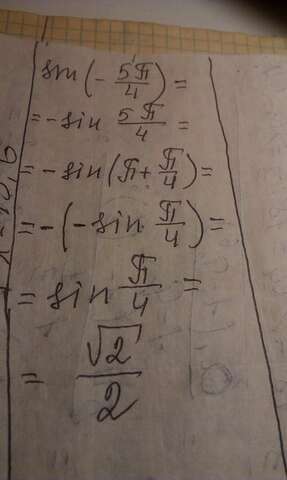 sin(-5π/4) =
= -sin 5π/4 =
= -sin(π+π/4) =
= -(-sin π/4) =
= sin π/4 =
= √2/2